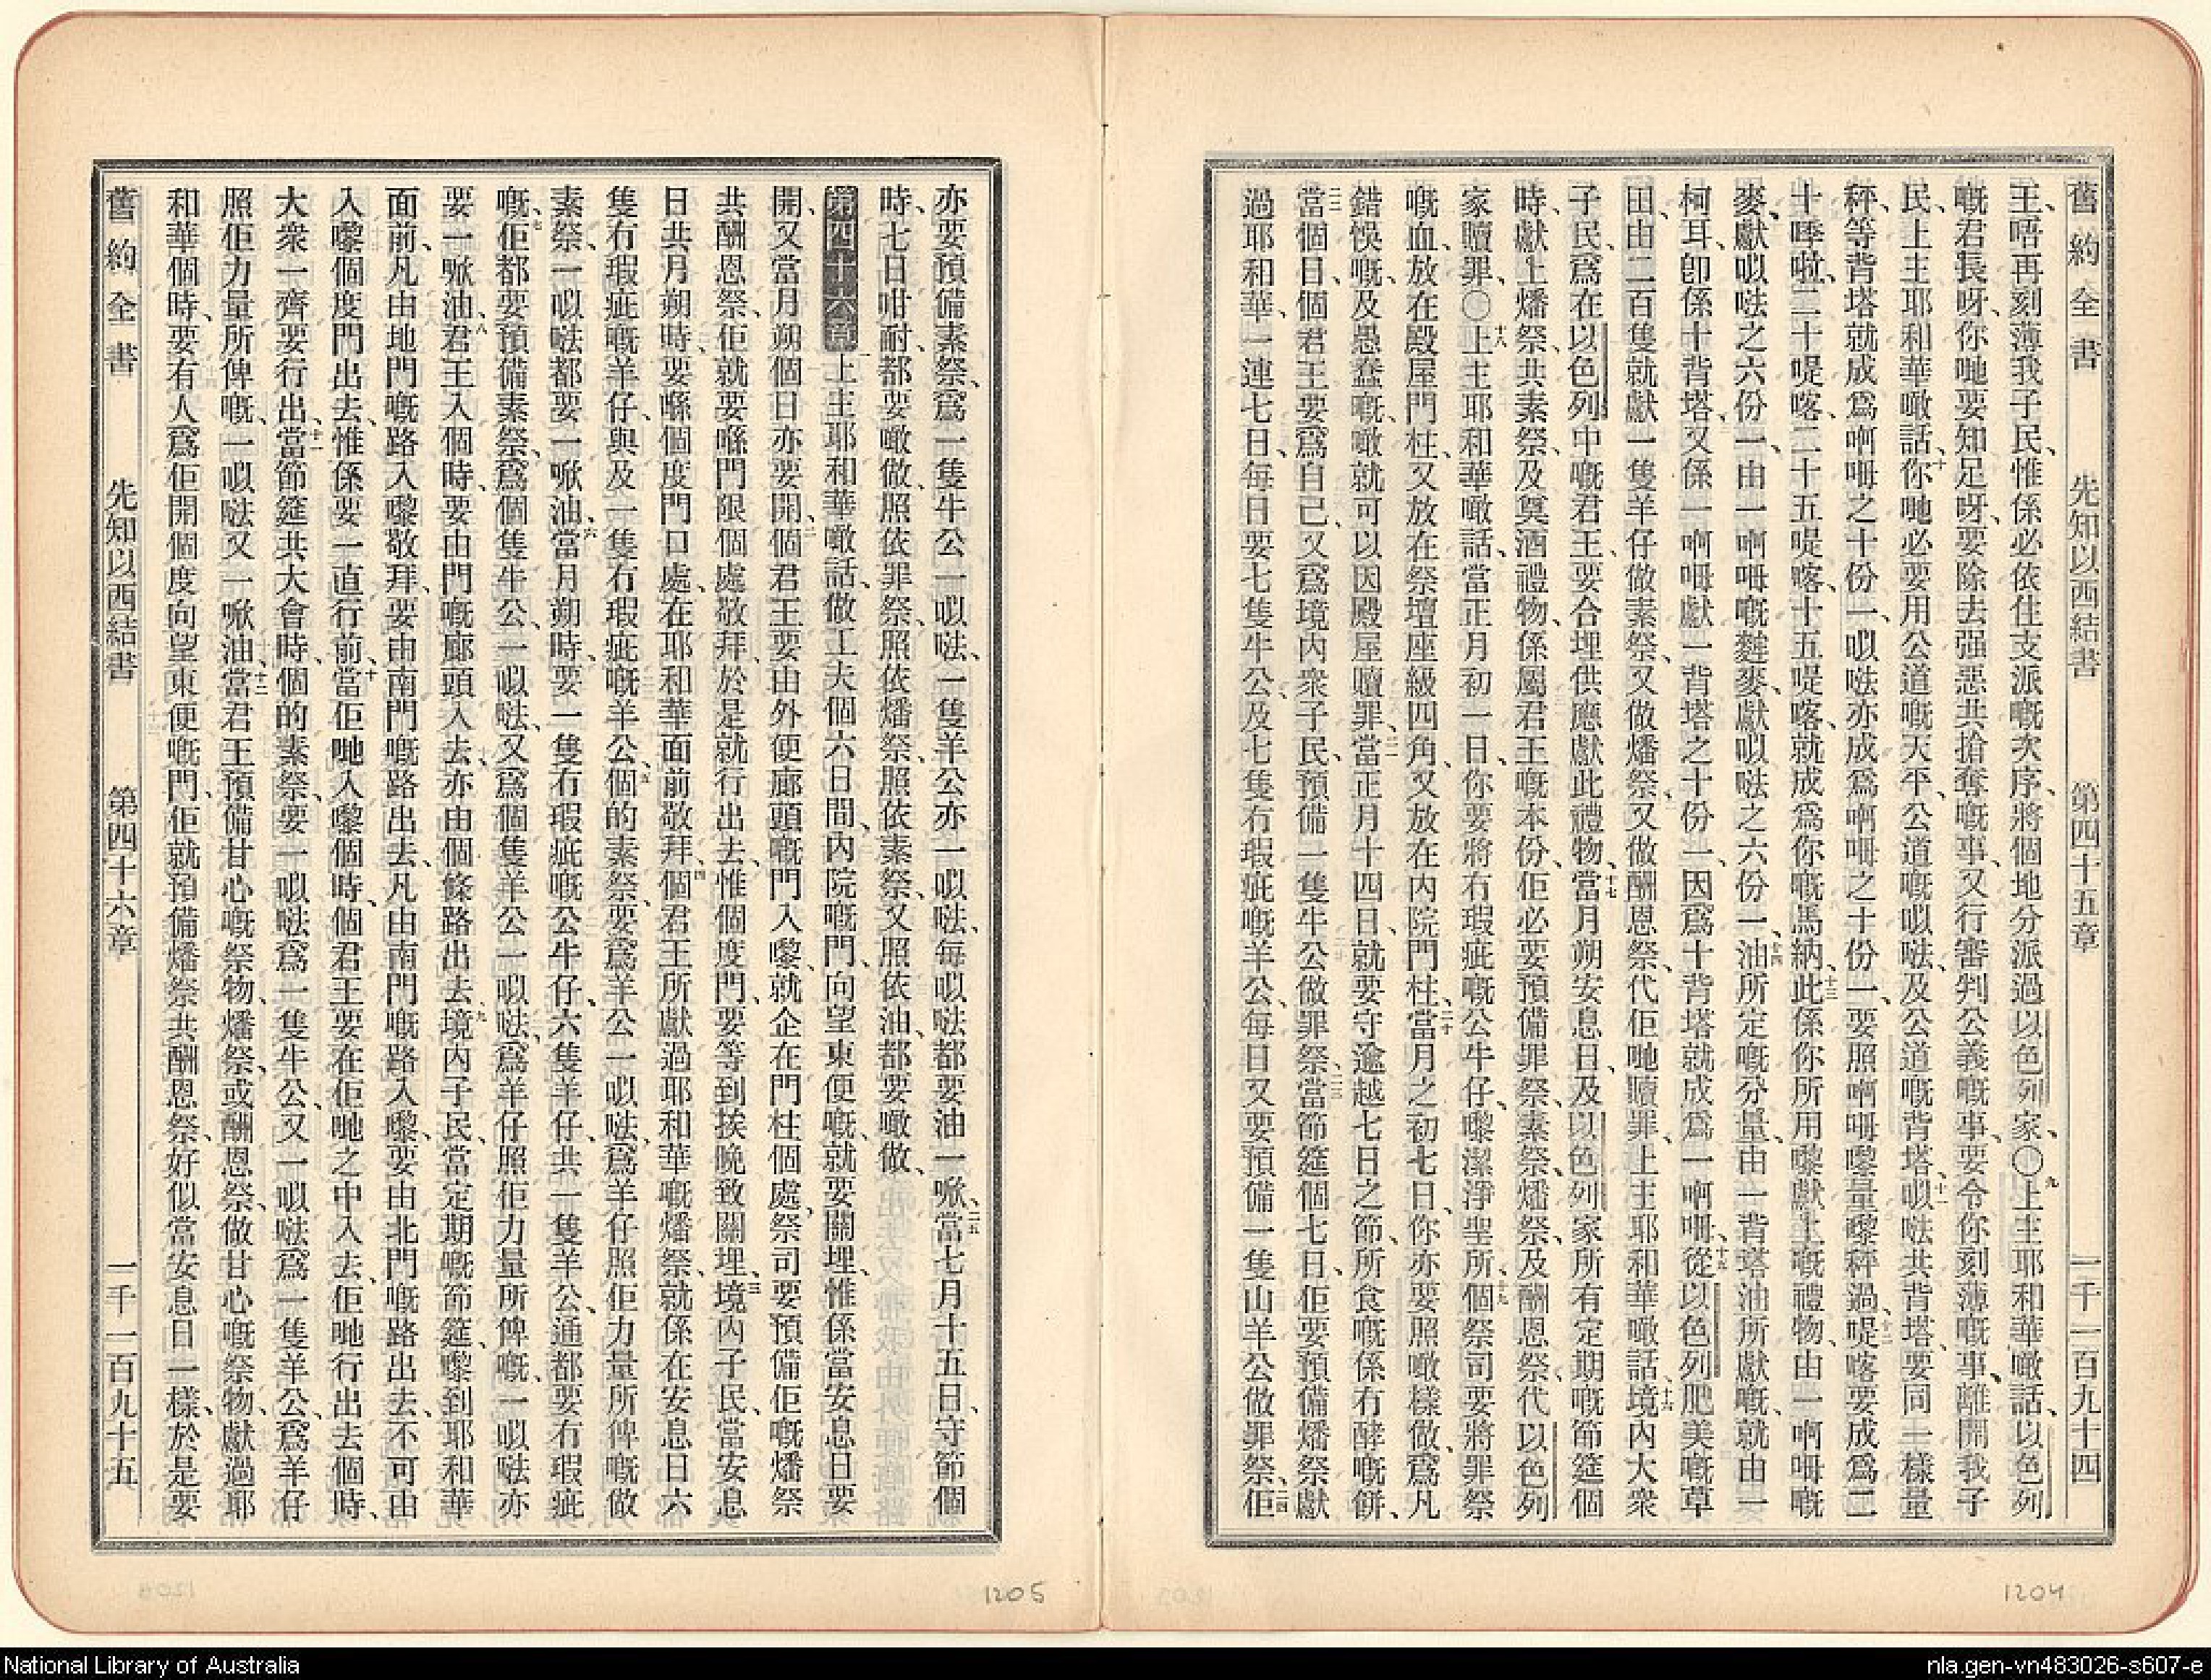 舊約全書 先知以西結書 第四十五章 一千一百九十四
王、唔再刻薄我子民、惟係必依住支派嘅次序、將個地分派過以色列家、〇九上主耶和華噉話、以色列
嘅君長呀、你哋要知足呀、要除去强惡共搶奪嘅事、又行審判公義嘅事、要令你刻薄嘅事、離開我子
民、上主耶和華噉話、十你哋必要用公道嘅天平、公道嘅𠲖㗳、及公道嘅背塔、十一𠲖㗳共背塔、要同一樣量
秤、等背塔就成爲㗁㖼之十份一、𠲖㗳亦成爲㗁㖼之十份一、要照㗁㖼嚟量嚟秤過、十二㖷喀要成爲二
十㖶啦、二十㖷喀、二十五㖷喀、十五㖷喀、就成爲你嘅馬納、十三此係你所用嚟獻上嘅禮物、由一㗁㖼嘅
麥、獻𠲖㗳之六份一、由一㗁㖼嘅麰麥、獻𠲖㗳之六份一、十四油所定嘅分量、由一背塔油所獻嘅、就由一
柯耳、卽係十背塔、又係一㗁㖼獻一背塔之十份一、因爲十背塔就成爲一㗁㖼、十五從以色列肥美嘅草
田、由二百隻就獻一隻羊仔做素祭、又做燔祭、又做酬恩祭、代佢哋贖罪、上主耶和華噉話、十六境內大衆
子民、爲在以色列中嘅君王、要合埋供應獻此禮物、十七當月朔安息日、及以色列家所有定期嘅節筵個
時、獻上燔祭、共素祭、及奠酒禮物、係屬君王嘅本份、佢必要預備罪祭、素祭、燔祭、及酬恩祭、代以色列
家贖罪、〇十八上主耶和華噉話、當正月初一日、你要將冇瑕疵嘅公牛仔、嚟潔淨聖所、十九個祭司要將罪祭
嘅血、放在殿屋門柱、又放在祭壇座級四角、又放在內院門柱、二十當月之初七日、你亦要照噉樣做、爲凡
錯悞嘅、及愚蠢嘅、噉就可以因殿屋贖罪、二一當正月十四日、就要守逾越七日之節、所食嘅係冇酵嘅餅、
二二當個日、個君王要爲自己、又爲境內衆子民、預備一隻牛公做罪祭、二三當節筵個七日、佢要預備燔祭獻
過耶和華、一連七日、每日要七隻牛公、及七隻冇瑕疵嘅羊公、每日又要預備一隻山羊公做罪祭、二四佢
亦要預備素祭、爲一隻牛公一𠲖㗳、一隻羊公亦一𠲖㗳、每𠲖㗳都要油一㗅、二五當七月十五日、守節個
時、七日咁耐、都要噉做、照依罪祭、照依燔祭、照依素祭、又照依油、都要噉做、
第四十六章 一上主耶和華噉話、做工夫個六日間、內院嘅門、向望東便嘅、就要關埋、惟係當安息日要
開、又當月朔個日亦要開、二個君王要由外便廊頭嘅門入嚟、就企在門柱個處、祭司要預備佢嘅燔祭
共酬恩祭、佢就要喺門限個處敬拜、於是就行出去、惟個度門、要等到挨晚致關埋、三境內子民、當安息
日共月朔時、要喺個度門口處、在耶和華面前敬拜、四個君王所獻過耶和華嘅燔祭、就係在安息日六
隻冇瑕疵嘅羊仔、與及一隻冇瑕疵嘅羊公、五個的素祭、要爲羊公一𠲖㗳、爲羊仔照佢力量所俾嘅做
素祭、一𠲖㗳都要一㗅油、六當月朔時、要一隻冇瑕疵嘅公牛仔、六隻羊仔、共一隻羊公、通都要冇瑕疵
嘅、七佢都要預備素祭、爲個隻牛公、一𠲖㗳、又爲個隻羊公一𠲖㗳、爲羊仔照佢力量所俾嘅、一𠲖㗳亦
要一㗅油、八君王入個時、要由門嘅廊頭入去、亦由個條路出去、九境內子民、當定期嘅節筵、嚟到耶和華
面前、凡由北門嘅路入嚟敬拜、要由南門嘅路出去、凡由南門嘅路入嚟、要由北門嘅路出去、不可由
入嚟個度門出去、惟係要一直行前、十當佢哋入嚟個時、個君王要在佢哋之中入去、佢哋行出去個時、
大衆一齊要行出、十一當節筵共大會時、個的素祭、要一𠲖㗳爲一隻牛公、又一𠲖㗳爲一隻羊公、爲羊仔
照佢力量所俾嘅、一𠲖㗳又一㗅油、十二當君王預備甘心嘅祭物、燔祭、或酬恩祭、做甘心嘅祭物、獻過耶
和華個時、要有人爲佢開個度向望東便嘅門、佢就預備燔祭共酬恩祭、好似當安息日一樣、於是要
舊約全書 先知以西結書 第四十六章 一千一百九十五
1205
1204
National Library of Australia
nla.gen-vn483026-s607-e